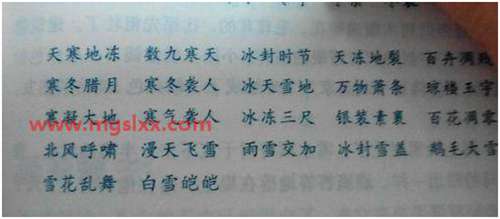 天寒地冻 数九寒天 冰封时节 天冻地裂 百卉凋残
寒冬腊月 寒冬袭人 冰天雪地 万物萧条 琼楼玉宇
寒凝大地 寒气袭人 冰冻三尺 银装素裹 百花凋零
www.mgslxx.com
北风呼啸 漫天飞雪 雨雪交加 冰封雪盖 鹅毛大雪
雪花乱舞 白雪皑皑